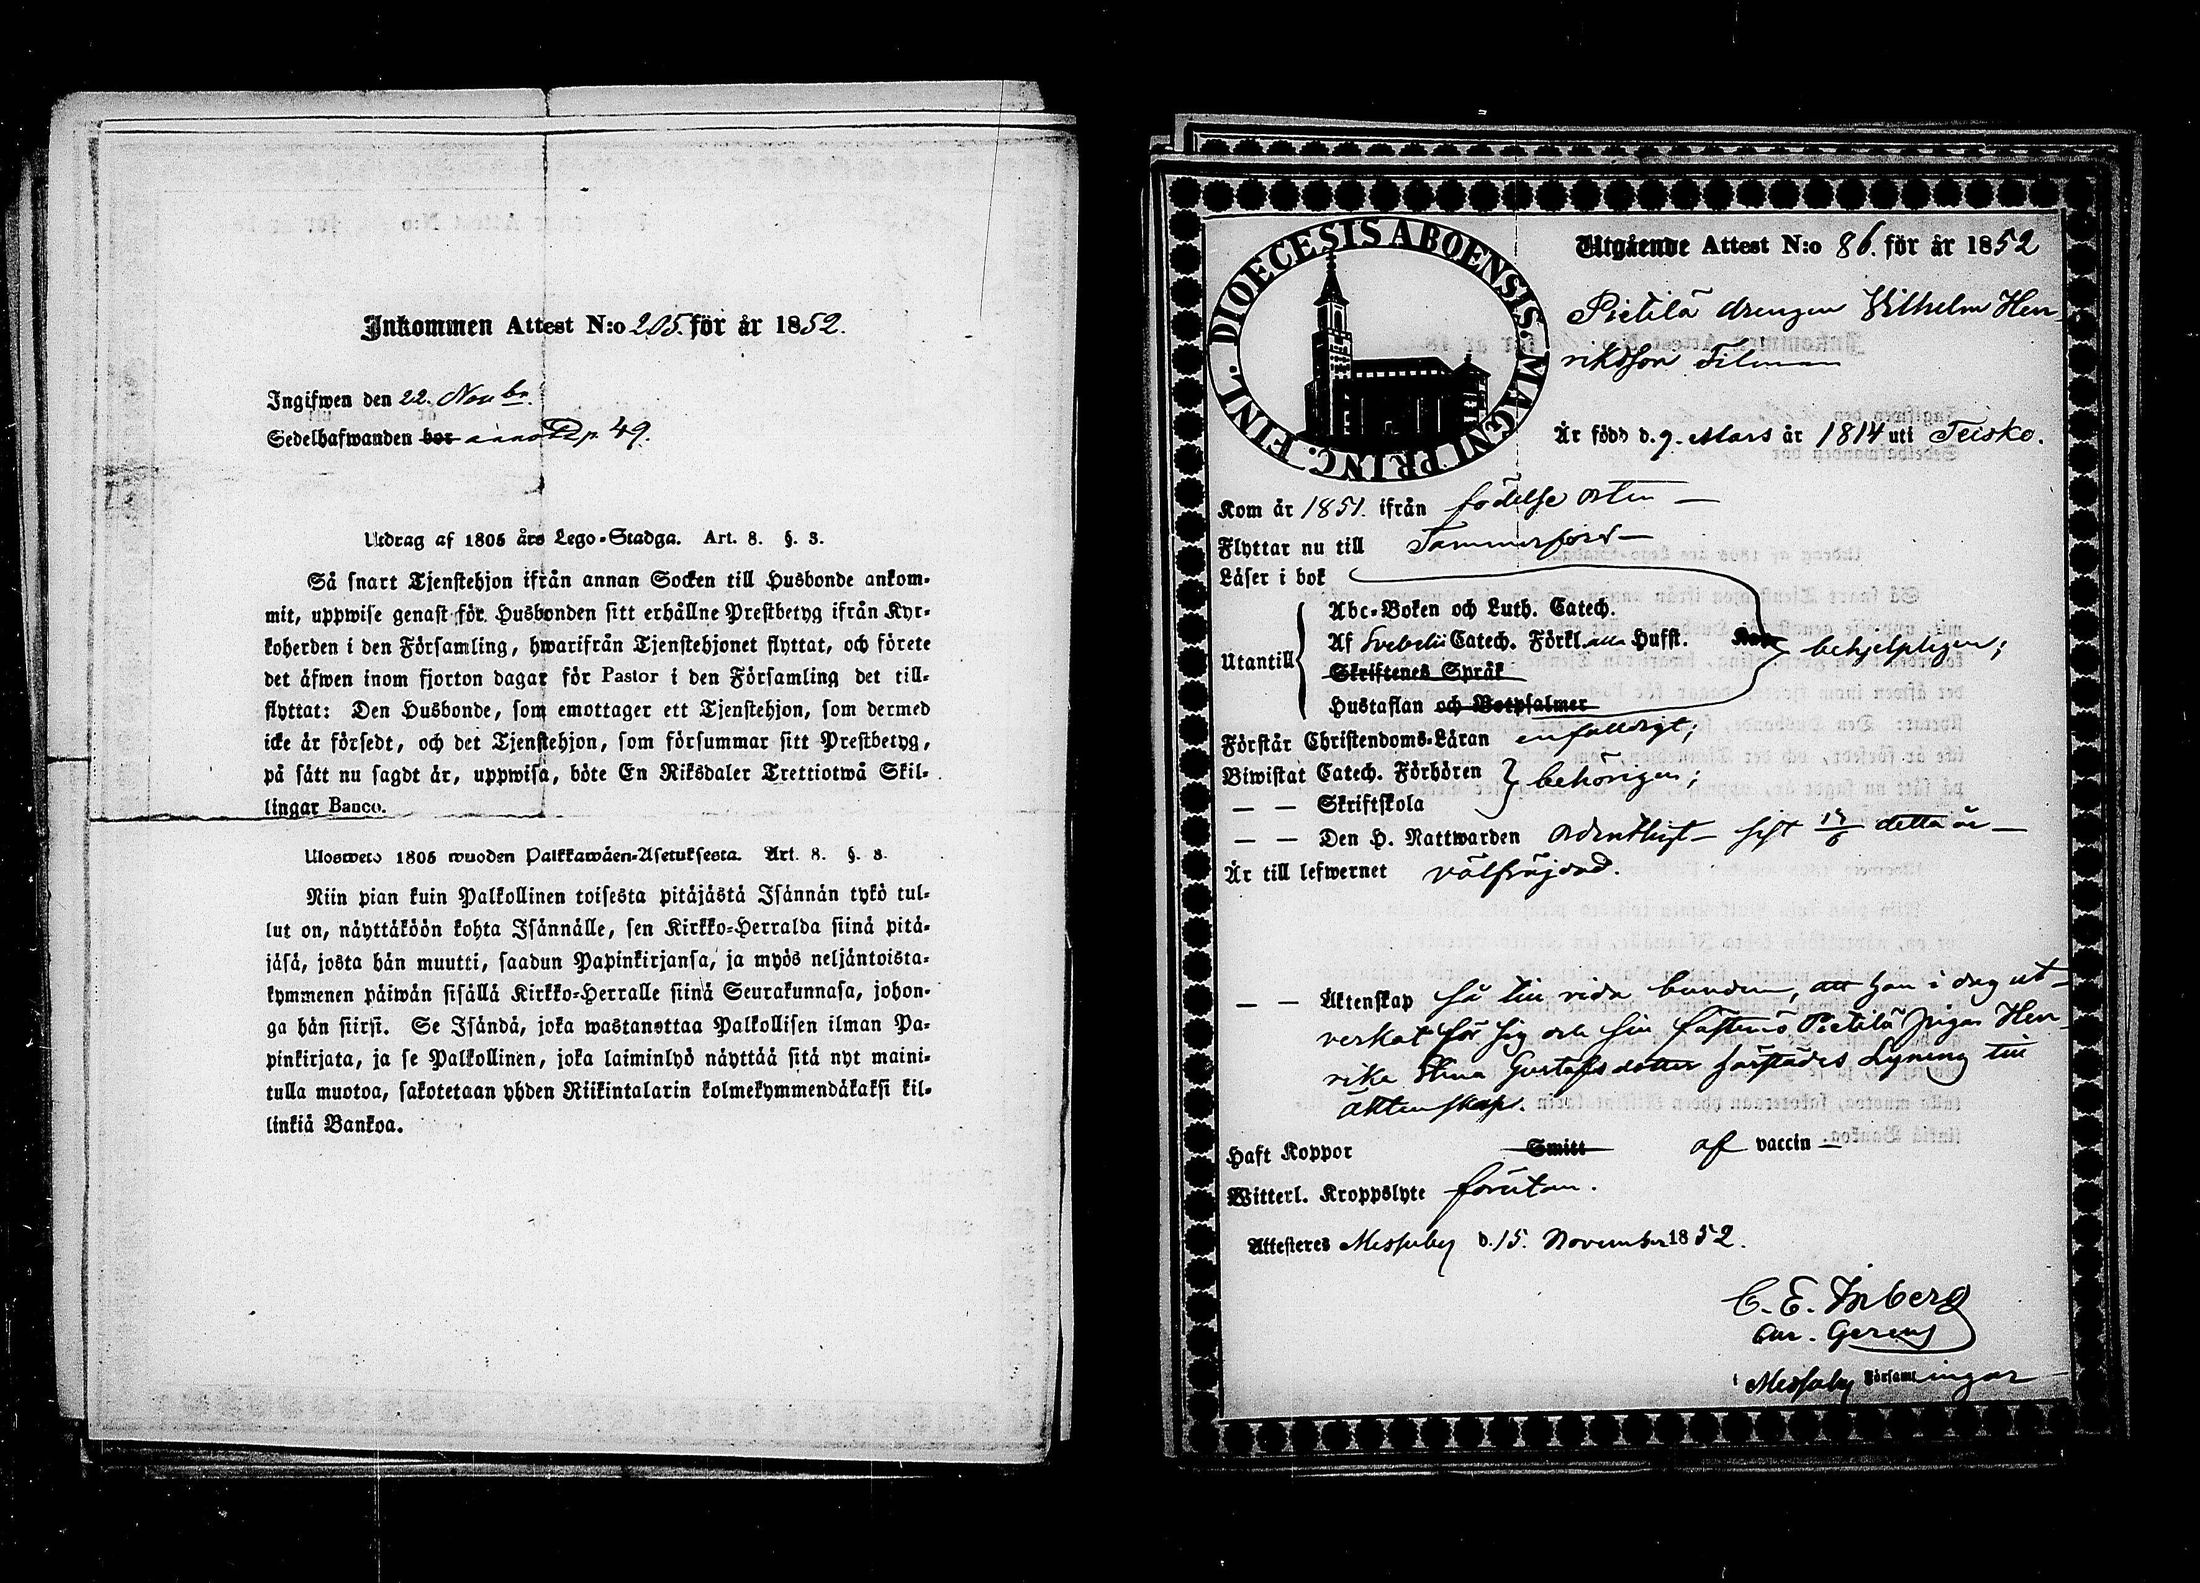 Inkommen Attest N:o 205. för år 1852.
Ingifwen den 22. Novbr.
Sedelhafwanden bor p. 49.
Utdrag af 1805 års Lego-Stadga. Art. 8. §. 8.
Så snart Tjenstehjon ifrån annan Socken till Husbonde ankom-
mit, uppwise genast för Husbonden sitt erhållne Prestbetyg ifrån Kyr-
koherden i den Församling, hwarifrån Tjenstehjonet flyttat, och förete
det äfwen inom fjorton dagar för Pastor i den Församling det till-
flyttat: Den Husbonde, som emottager ett Tjenstehjon, som dermed
icke är försedt, och det Tjenstehjon, som försummar sitt Prestbetyg,
på sått nu sagdt är, uppwisa, böte En Riksdaler Trettiotwå Skil-
lingar Banco.
Ulosweto 1805 wuoden Palkkawäen-Asetuksesta. Art. 8. §. 8.
Niin pian kuin Palkollinen toisesta pitäjästä Isännän tykö tul-
lut on, näyttäköön kohta Isännälle, sen Kirkko-Herralda siinä pitä-
jäsä, josta hän muutti, saadun Papinkirjansa, ja myös neljäntoista-
kymmenen päiwän sisällä Kirkko-Herralle siinä Seurakunnasa, johon-
ga hän siirsi. Se Isändä, joka wastanottaa Palkollisen ilman Pa-
pinkirjata, ja se Palkollinen, joka laiminlyö näyttää sitä nyt maini-
tulla muotoa, sakotetaan yhden Riikintalarin kolmekymmendäkaksi kil-
linkiä Bankoa.
FINL. DIOECESIS ABOENSIS. MAGNI PRINC.
Utgående Attest N:o 86. för år 1852
Pietilä drengen Vilhelm Hen-
riksson Filman
Är född d. 9. Mars år 1814 uti Teisko.
Kom år 1851. ifrån födelse orten —
Flyttar nu till Tammerfors —
Läser i bok
Abc-Boken och Luth. Catech.
Utantill Af Svebelii Catech. Förkl. alla Hufst. behjelpligen;
Skriftenes Språk
Hustaflan och Botpsalmer
Förstår Christendoms-Läran enfalldigt;
Biwistat Catech. Förhören behörigen;
— — Skriftskola
— — Den H. Nattwarden ordentligt — sist 13/6 detta år —
Är till lefwernet välfräjdad.
— — Äktenskap så till vida bunden, att han i dag ut-
verkat för sig och sin fästemö Pietilä pigan Hen-
rika Stina Gustafsdotter härstädes Lysning till
äktenskap.
Haft Koppor Smitt af vaccin —
Witterl. Kroppslyte förutan.
Attesteres Messuby d. 15. November 1852.
C. E. Inberg
Cur. Gerens
i Messuby Församlingar